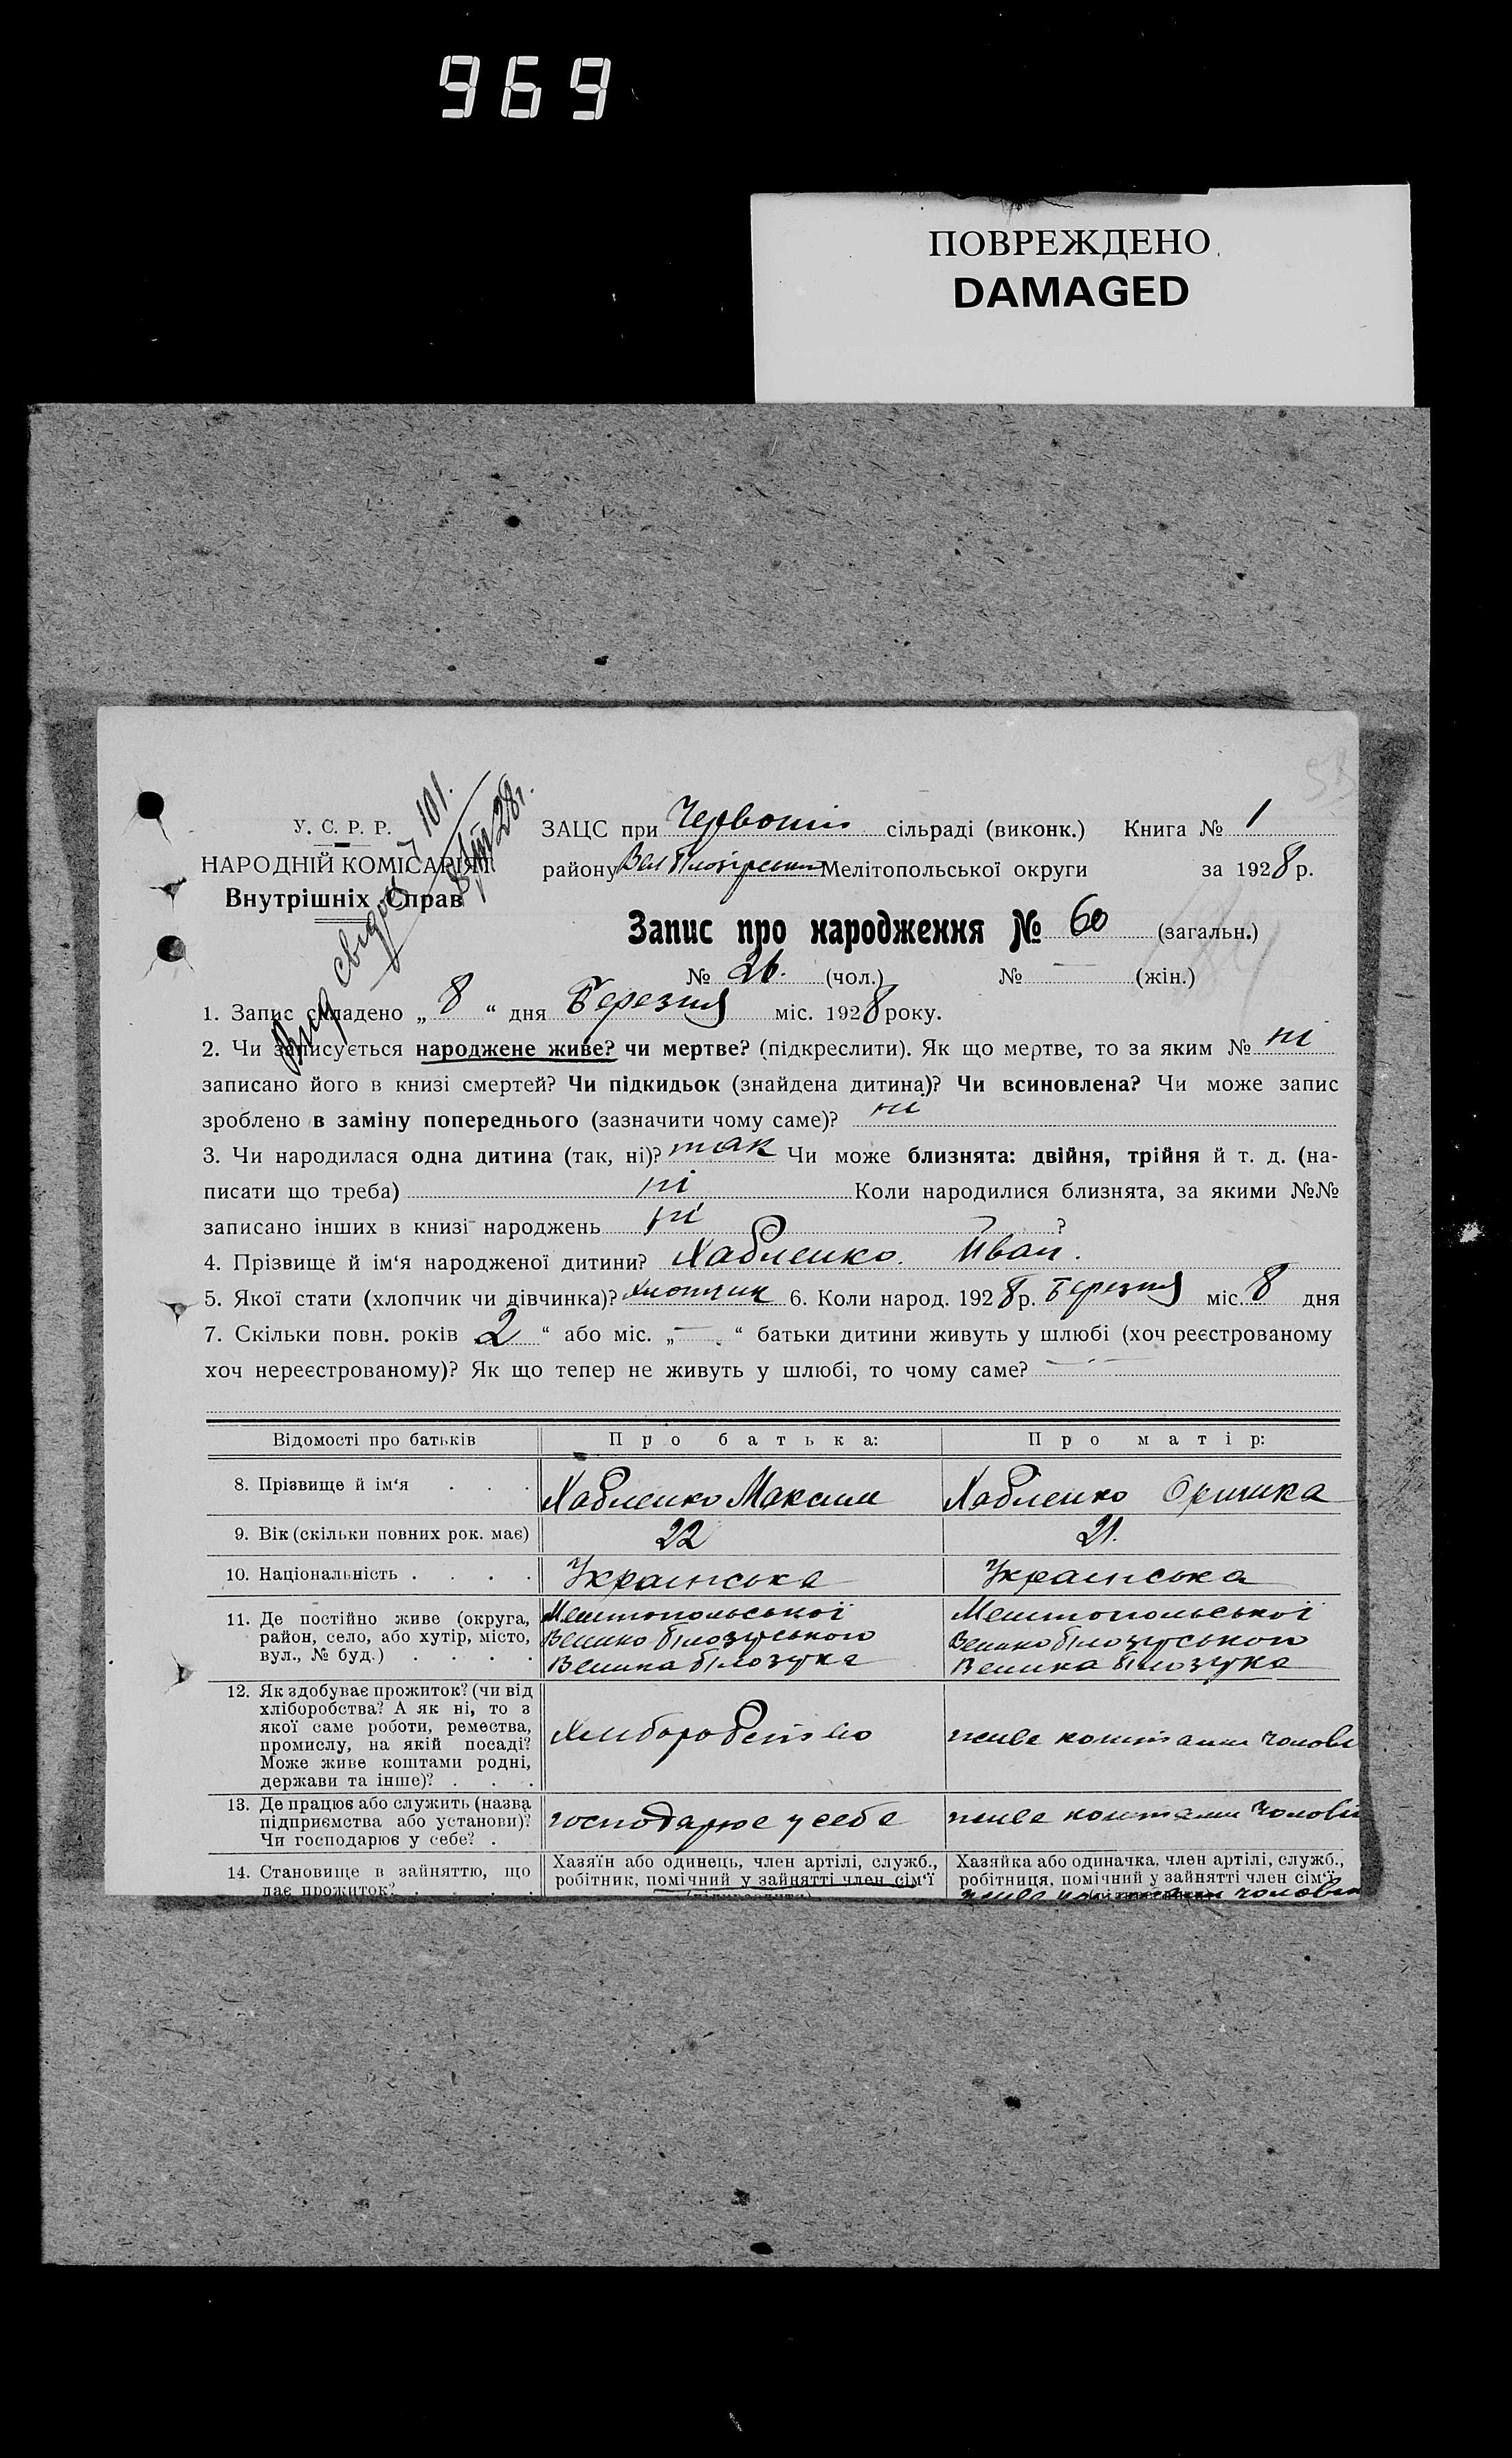 969
ПОВРЕЖДЕНО
DAMAGED
У. С. Р. Р.
НАРОДНІЙ КОМІСАРІЯТ
Внутрішніх Справ
101.
28 г.
ЗАЦС при сільраді (виконк.) Книга № 1
району Вел Білозірський Мелітопольської округи за 1928 р.
Запис про народження № 60 (загальн.)
№ 26. (чол.) № — (жін.)
1. Запис складено „ 8 “ дня Березня міс. 1928 року.
2. Чи записується народжене живе? чи мертве? (підкреслити). Як що мертве, то за яким № ні
записано його в книзі смертей? Чи підкидьок (знайдена дитина)? Чи всиновлена? Чи може запис
зроблено в заміну попереднього (зазначити чому саме)? ні
3. Чи народилася одна дитина (так, ні)? так Чи може близнята: двійня, трійня й т. д. (на-
писати що треба) ні Коли народилися близнята, за якими №№
записано інших в книзі народжень ні ?
4. Прізвище й ім‘я народженої дитини? Хабленко. Иван.
5. Якої стати (хлопчик чи дівчинка)? хлопчик 6. Коли народ. 1928 р. Березня міс. 8 дня
7. Скільки повн. років 2 “ або міс. „ — “ батьки дитини живуть у шлюбі (хоч реєстрованому
хоч нереєстрованому)? Як що тепер не живуть у шлюбі, то чому саме? —
Відомості про батьків Про батька: Про матір:
8. Прізвище й ім‘я . . . Хабленко Максим Хабленко Оришка
9. Вік (скільки повних рок. має) 22 21.
10. Національність . . . . Українська Українська
11. Де постійно живе (округа,
район, село, або хутір, місто,
вул., № буд.) . . . .
Мелітопольської
Велико білозерського
Велика білозерка
Мелітопольської
Велико білозерського
Велика білозерка
12. Як здобуває прожиток? (чи від
хліборобства? А як ні, то з
якої саме роботи, ремества,
промислу, на якій посаді?
Може живе коштами родні,
держави та інше)? . . .
Хліборобство
живе коштами чолові
13. Де працює або служить (назва
підприємства або установи)?
Чи господарює у себе? .
господарює у себе
живе коштами чолові
14. Становище в зайняттю, що
дає прожиток? . . . .
Хазяїн або одинець, член артілі, служб.,
робітник, помічний у зайнятті член сім‘ї
(підкреслити)
Хазяйка або одиначка, член артілі, служб.,
робітниця, помічний у зайнятті член сім‘ї.
живе коштами чолові